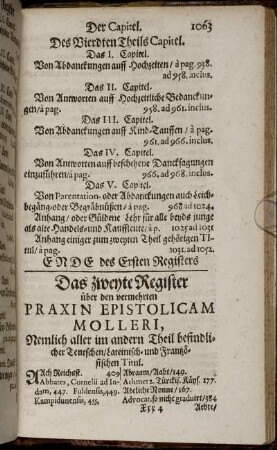 Der Capitel. 1063
Des Vierdten Theils Capitel.
Das I. Capitel.
Von Abdanckungen auff Hochzeiten / à pag. 938.
ad 958. inclus.
Das II. Capitel.
Von Antworten auff Hochzeitliche Bedanckun-
gen / à pag. 958. ad 961. inclus.
Das III. Capitel.
Von Abdanckungen auff Kind-Tauffen / à pag.
961. ad 966. inclus.
Das IV. Capitel.
Von Antworten auff beschehene Dancksagungen
einzuführen / à pag. 966, ad 968. inclus.
Das V. Capitel.
Von Parentation- oder Abdanckungen auch Leich-
begäng- oder Begräbnüssen / à pag. 968 ad 1024.
Anhang / oder Güldene Lehr für alle beyds junge
als alte Handels- und Kauffleute / à p. 1025 ad 1031
Anhang einiger zum zweyten Theil gehörigen Ti-
tul / à pag. 1031. ad 1052.
ENDE des Ersten Registers
Das Zweyte Register
über den vermehrten
PRAXIN EPISTOLICAM
MOLLERI,
Nemlich aller im andern Theil befindli-
cher Teutschen / Lateinisch- und Frantzö-
sischen Titul.
AAch Reichsst. 409
Abbates, Cornelii ad In-
dam, 447. Fuldensis, 449.
Kampidunensis, 455.
Abwaam / Aabt / 149.
Achmetz. Türckis. Käys. 177.
Abeliche Nonne / 167.
Advocat. so nicht graduirt / 384
Xxx 4 Aebte /